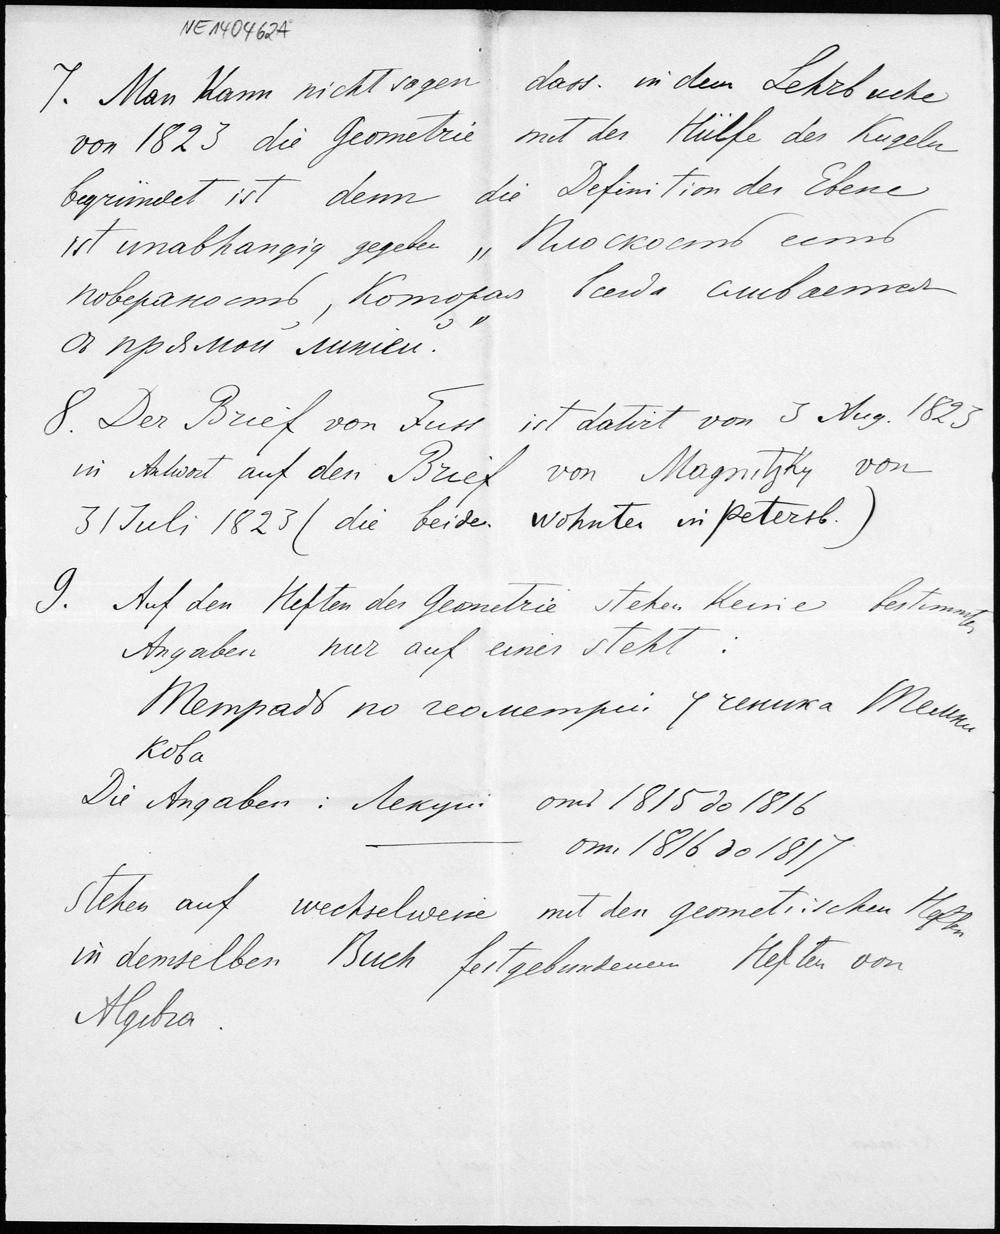 NE140462A
7. Man kann nicht sagen dass in dem Lehrbuche
von 1823 die Geometrie mit der Hülfe der Kugeln
begründet ist denn die Definition der Ebene
ist unabhangig gegeben „ Плоскость есть
поверхность, которая всегда сливается
съ прямой линіей."
8. Der Brief von Fuss ist datirt von 3 Aug. 1823
in Antwort auf den Brief von Magnitzky von
31 Juli 1823 ( die beiden wohnten in Petersb.)
9. Auf den Heften der Geometrie stehen keine bestimmten
Angaben nur auf einer steht :
Тетрадь по геометріи ученика Темни
кова
Die Angaben : Лекціи отъ 1815 до 1816
отъ 1816 до 1817
stehen auf wechselweise mit den geometrischen Heften
in demselben Buch festgebundenen Heften von
Algebra.